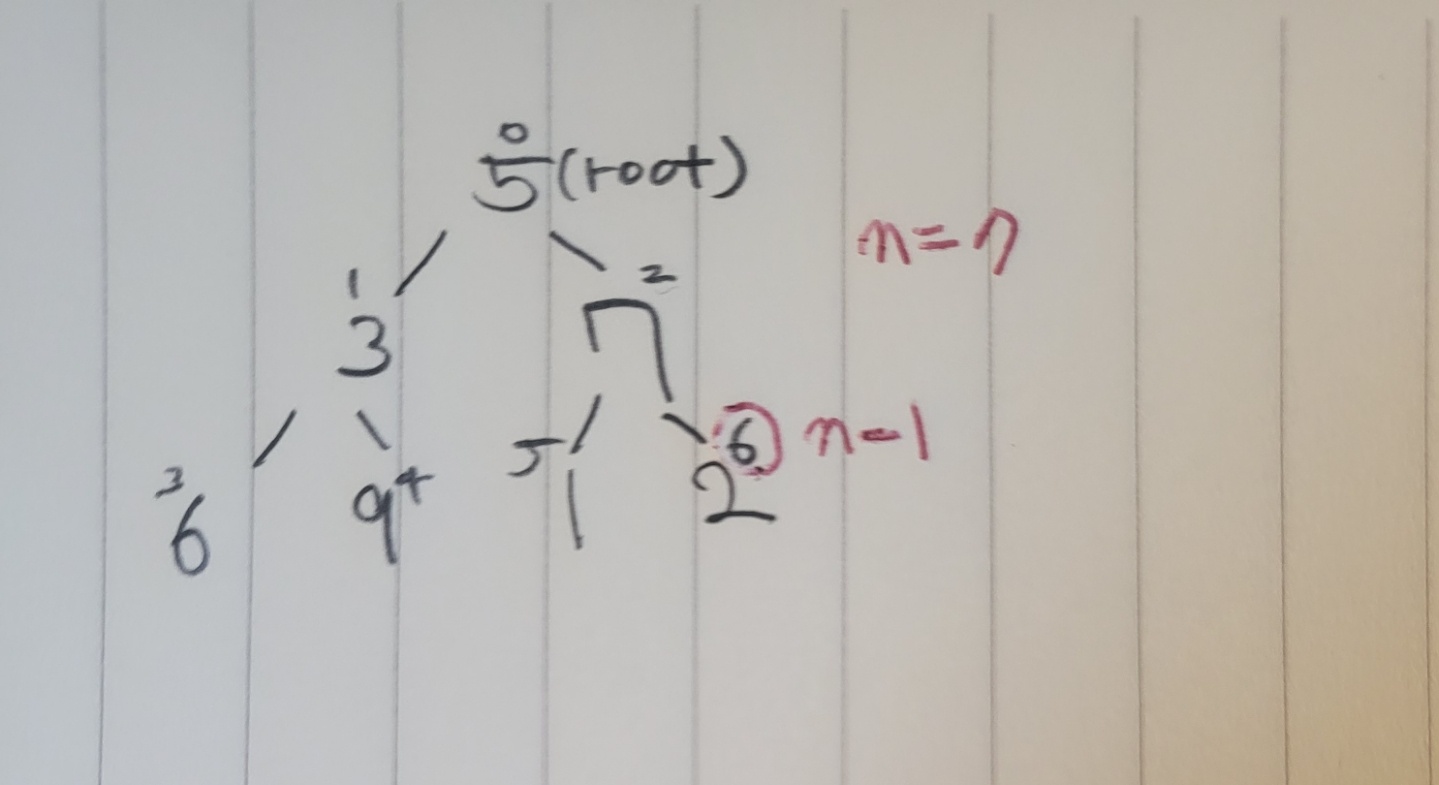 0
5 (root)
n=7
1 2
3 7
5 6 n-1
3 9 4 1 2
6